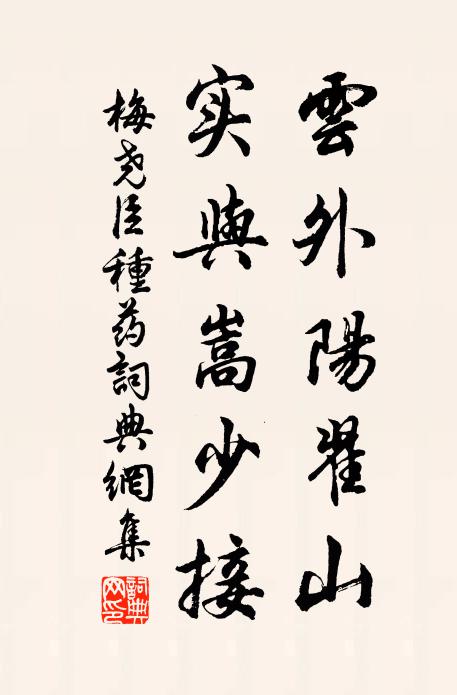 雲外陽翟山
实與嵩少接
梅尧臣種药詞典網集
詞典网印